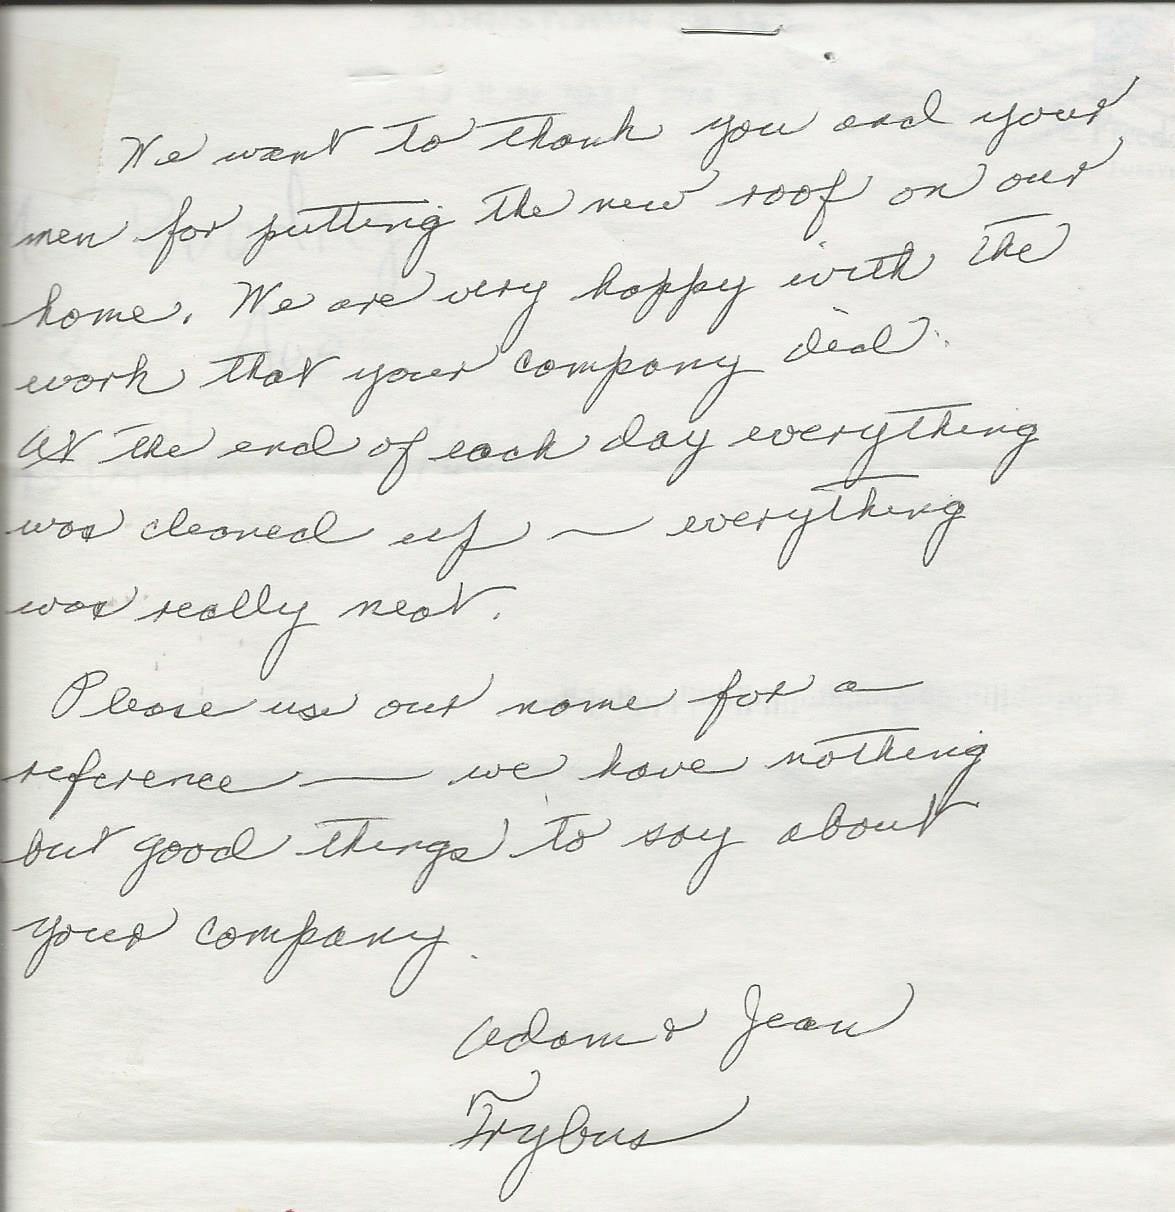 We want to thank you and your
men for putting the new roof on our
home. We are very happy with the
work that your company did.
At the end of each day everything
was cleaned up — everything
was really neat.
Please use our name for a
reference — we have nothing
but good things to say about
your company.
Adam & Jean
Trybus